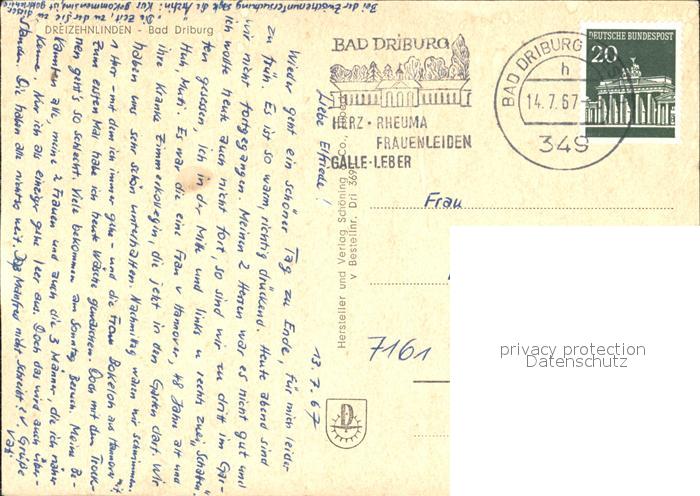 DREIZEHNLINDEN - Bad Driburg
13.7.67
Liebe Elfriede!
Wieder geht ein schöner Tag zu Ende, für mich leider
zu früh. Es ist so warm, richtig drückend. Heute abend sind
wir nicht fortgegangen. Meinen 2 Herzen war es nicht gut und
ich wollte heute auch nicht fort, so sind wir zu dritt im Gar-
ten gesessen, ich in der Mitte und links u rechts zwei "Schatten".
Huh, Mutti. Es war die eine Frau v Hannover, 48 Jahre alt und
ihre kranke Zimmerkollegin, die jetzt in den Garten darf. Wir
haben uns sehr schön unterhalten. Nachmittag waren wir schwimmen.
1 Herr - mit dem ich immer gehe - und die Frau Bokelon aus Hannover mit.
Zum ersten Mal habe ich heute Wäsche gewaschen. Doch mit dem Trock-
nen geht's so schlecht. Viele bekommen am Sonntag Besuch. Meine Be-
kannten alle, meine 2 Frauen und auch die 3 Männer, die ich näher
kenne. Nur ich als einziger gehe leer aus. Doch das wird auch über-
standen. Die haben alle nicht so weit. Manfred nicht schreibt? V. Grüße
Vati
Bei der Zwischenuntersuchung sagte die Ärztin: Kur
"Die Zeit, zu der Sie gekommen sind, ist goldrichtig
BAD DRIBURG
HERZ · RHEUMA
FRAUENLEIDEN
GALLE · LEBER
BAD DRIBURG
h
14.7.67
349
DEUTSCHE BUNDESPOST
20
Hersteller und Verlag Schöning & Co.
Bestellnr. Dri
Frau
7161
D
privacy protection
Datenschutz